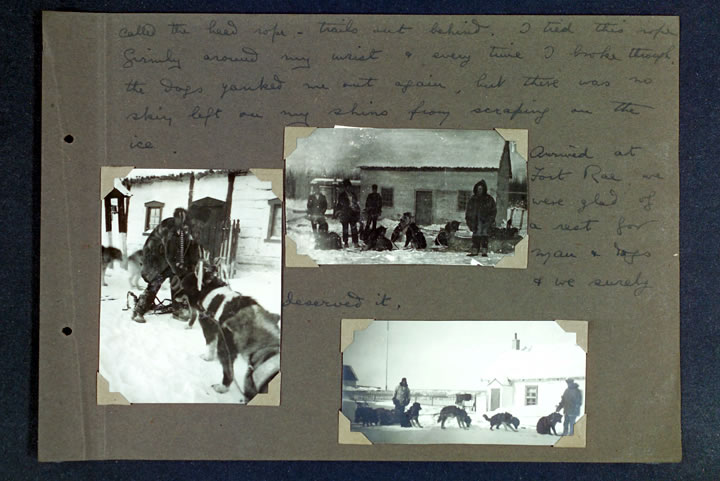 called the head rope - trails out behind. I tied this rope
firmly around my wrist & every time I broke through,
the dogs yanked me out again, but there was no
skin left on my shins from scraping on the
ice.
Arrived at
Fort Rae we
were glad of
a rest for
man & dogs
& we surely
deserved it.